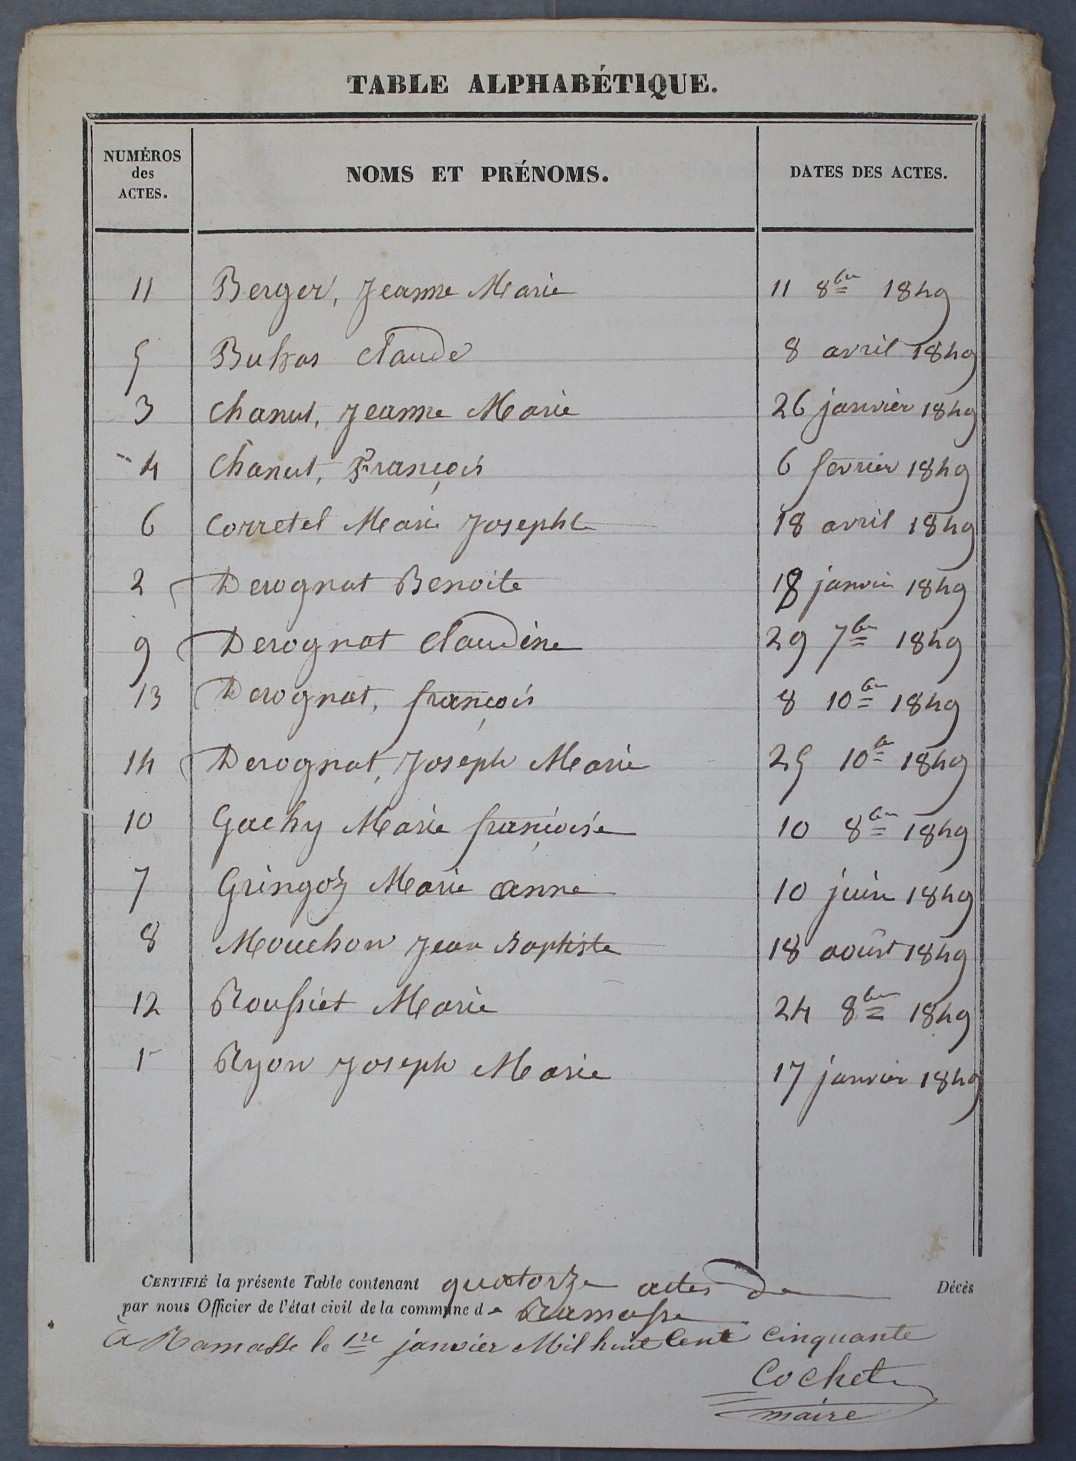 TABLE ALPHABÉTIQUE.
NUMÉROS des ACTES. NOMS ET PRÉNOMS. DATES DES ACTES.
11 Berger, Jeanne Marie 11 8bre 1849
5 Claude 8 avril 1849
3 Chanut, Jeanne Marie 26 janvier 1849
4 Chanut, François 6 fevrier 1849
6 Corretel Marie Josephte 18 avril 1849
2 Derognat Benoite 18 janvier 1849
9 Derognat Claudine 29 7bre 1849
13 Derognat, françois 8 10bre 1849
14 Derognat, Joseph Marie 25 10bre 1849
10 Gachy Marie françoise 10 8bre 1849
7 Gringoz Marie anne 10 juin 1849
8 Mouchon Jean Baptiste 18 août 1849
12 Roussiet Marie 24 8bre 1849
1 Ryon Joseph Marie 17 janvier 1849
CERTIFIÉ la présente Table contenant quatorze actes de Décès
par nous Officier de l'état civil de la commune de Ramasse
à Ramasse le 1er janvier Mil huit Cent cinquante
Cochet
maire